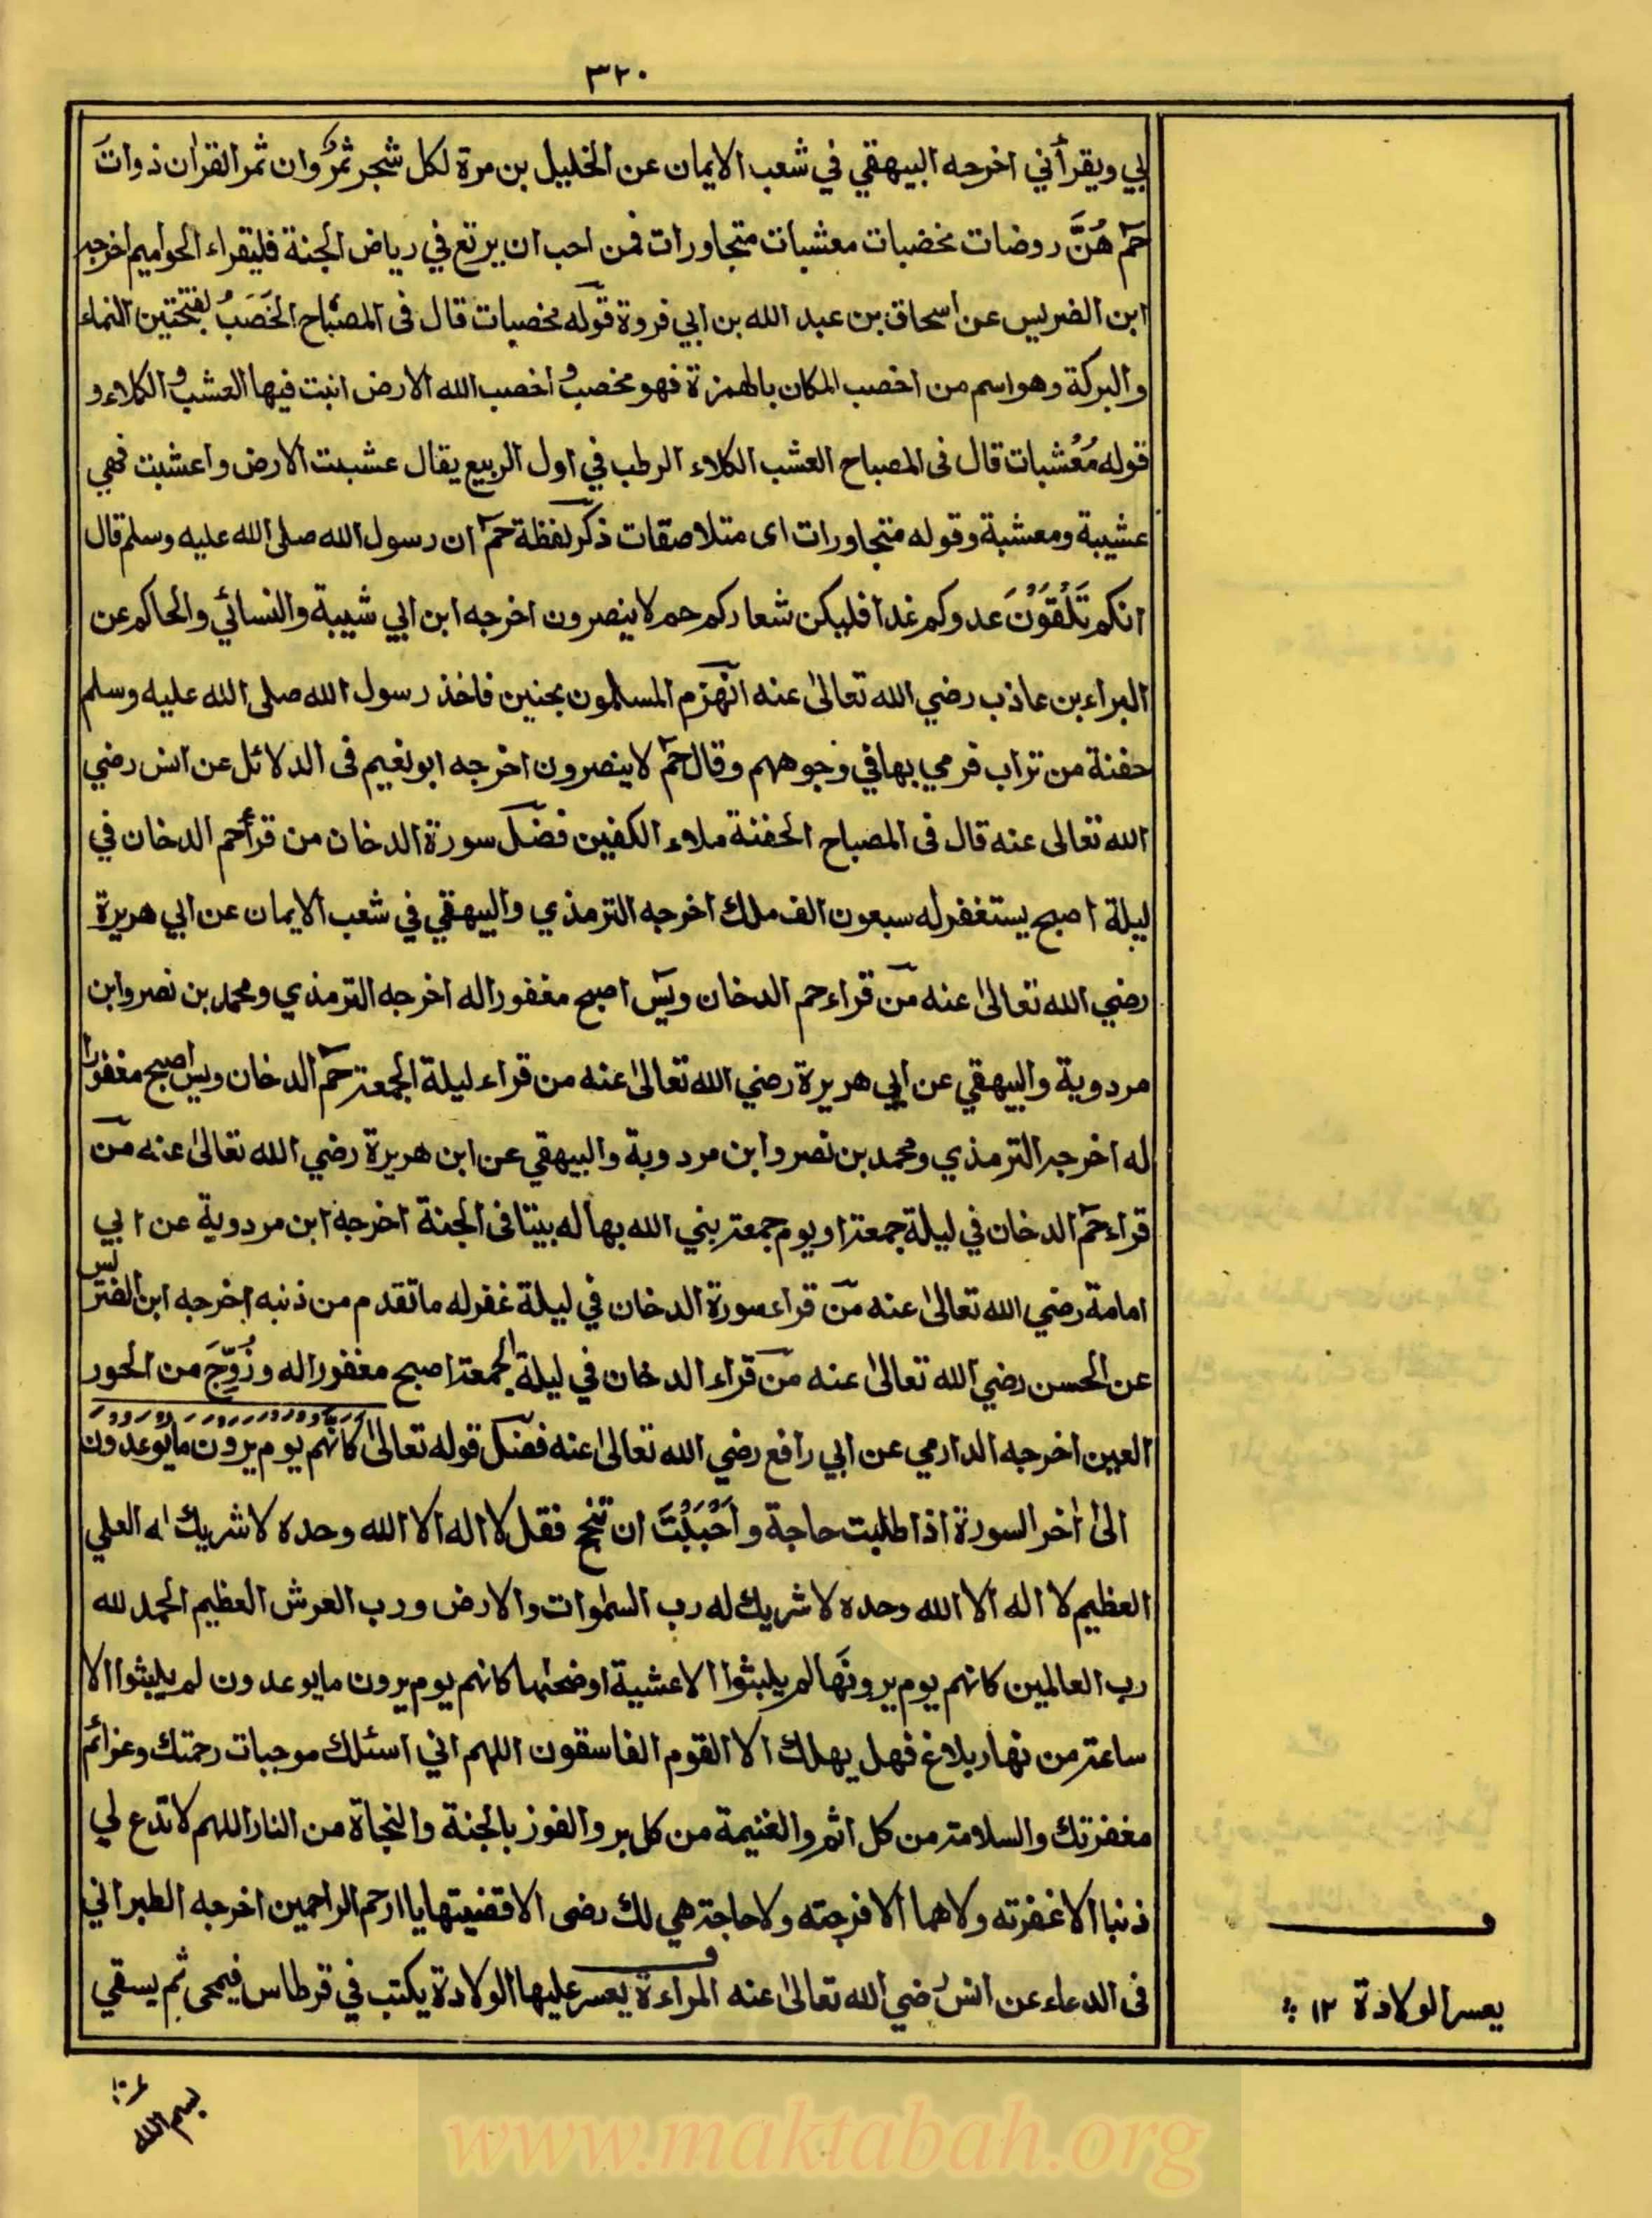 ٣٢٠
بي ويقرأني اخرجه البيهقي في شعب الايمان عن الخليل بن مرة لكل شجر ثمرٌ وان ثمر القراٰن ذوات
حٰمٓ هُنَّ روضات مخضبات معشبات متجاورات فمن احب ان يرتع في رياض الجنة فليقراء الحواميم اخرجه
ابن الضريس عن اسحاق بن عبد الله بن ابي فروة قوله مخصبات قال فى المصباح الخَصَبُ بفتحتين النماء
والبركة وهو اسم من اخصب المكان بالهمزة فهو مخصب و اخصب الله الارض انبت فيها العشب و الكلاء و
قوله مُعْشبات قال فى المصباح العشب الكلاء الرطب في اول الربيع يقال عشبت الارض واعشبت فهي
عشيبة ومعشبة وقوله متجاورات اى متلاصقات ذكر لفظة حٰمٓ ان رسول الله صلى الله عليه وسلم قال
انكم تَلْقَوْنَ عدوكم غدا فليكن شعاركم حم لا ينصرون اخرجه ابن ابي شيبة والنسائي والحاكم عن
البراء بن عاذب رضي الله تعالىٰ عنه انهزم المسلمون بحنين فاخذ رسول الله صلى الله عليه وسلم
حفنة من تراب فرمي بها في وجوههم وقال حٰمٓ لا ينصرون اخرجه ابو نعيم فى الدلائل عن انس رضي
الله تعالى عنه قال فى المصباح الحفنة ملاء الكفين فضل سورة الدخان من قرأ حم الدخان في
ليلة اصبح يستغفر له سبعون الف ملك اخرجه الترمذي والبيهقي في شعب الايمان عن ابي هريرة
رضي الله تعالىٰ عنه من قراء حم الدخان ويٰسٓ اصبح مغفورا له اخرجه الترمذي ومحمد بن نصر وابن
مردوية والبيهقي عن ابي هريرة رضي الله تعالىٰ عنه من قراء ليلة الجمعة حٰمٓ الدخان ويس اصبح مغفورا
له اخرجه الترمذي ومحمد بن نصر وابن مردوية والبيهقي عن ابن هريرة رضي الله تعالىٰ عنه من
قراء حٰمٓ الدخان في ليلة جمعة او يوم جمعة بني الله بها له بيتا فى الجنة اخرجه ابن مردوية عن ابي
امامة رضي الله تعالىٰ عنه من قراء سورة الدخان في ليلة غفر له ما تقدم من ذنبه اخرجه ابن الضريس
عن الحسن رضي الله تعالىٰ عنه من قراء الدخان في ليلة الجمعة اصبح مغفورا له وزُوِّجَ من الحور
العين اخرجه الدارمي عن ابي رافع رضي الله تعالىٰ عنه فضل قوله تعالىٰ كانهم يوم يرون ما يوعدون
الىٰ اٰخر السورة اذا طلبت حاجة و اَحْبَبْتَ ان تنجح فقل لا اله الا الله وحده لا شريك له العلي
العظيم لا اله الا الله وحده لا شريك له رب السمٰوات والارض ورب العرش العظيم الحمد لله
رب العالمين كانهم يوم يرونَها لم يلبثوا الا عشية او ضحٰها كانهم يوم يرون ما يوعدون لم يلبثوا الا
ساعة من نهار بلاغ فهل يهلك الا القوم الفاسقون اللهم اني اسئلك موجبات رحمتك وعزائم
مغفرتك والسلامة من كل اثم والغنيمة من كل بر والفوز بالجنة والنجاة من النار اللهم لا تدع لي
ذنبا الا غفرته ولا هما الا فرجته ولا حاجة هي لك رضى الا قضيتها يا ارحم الراحمين اخرجه الطبراني
فى الدعاء عن انس رضي الله تعالىٰ عنه المراءة يعسر عليها الولادة يكتب في قرطاس فيمحى ثم يسقي
يعسر الولادة ١٢
بسم الله
www.maktabah.org